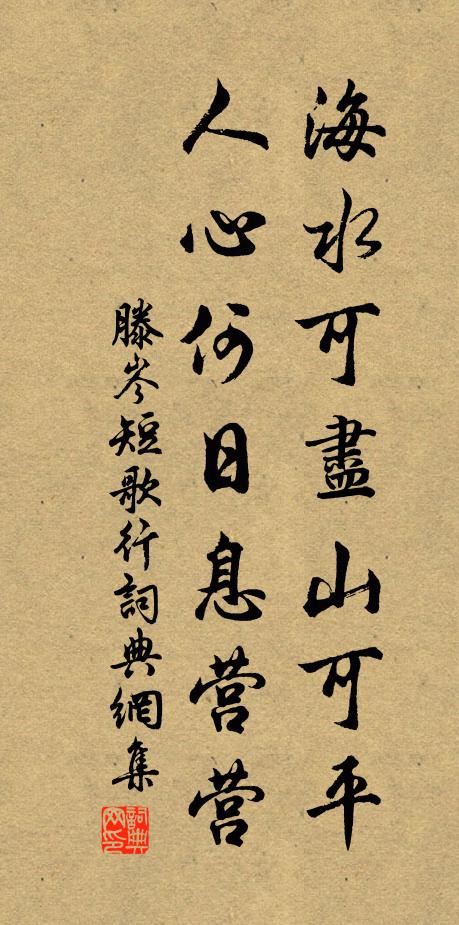 海水可盡山可平
人心何日息营营
滕岑短歌行詞典網集
詞典网印